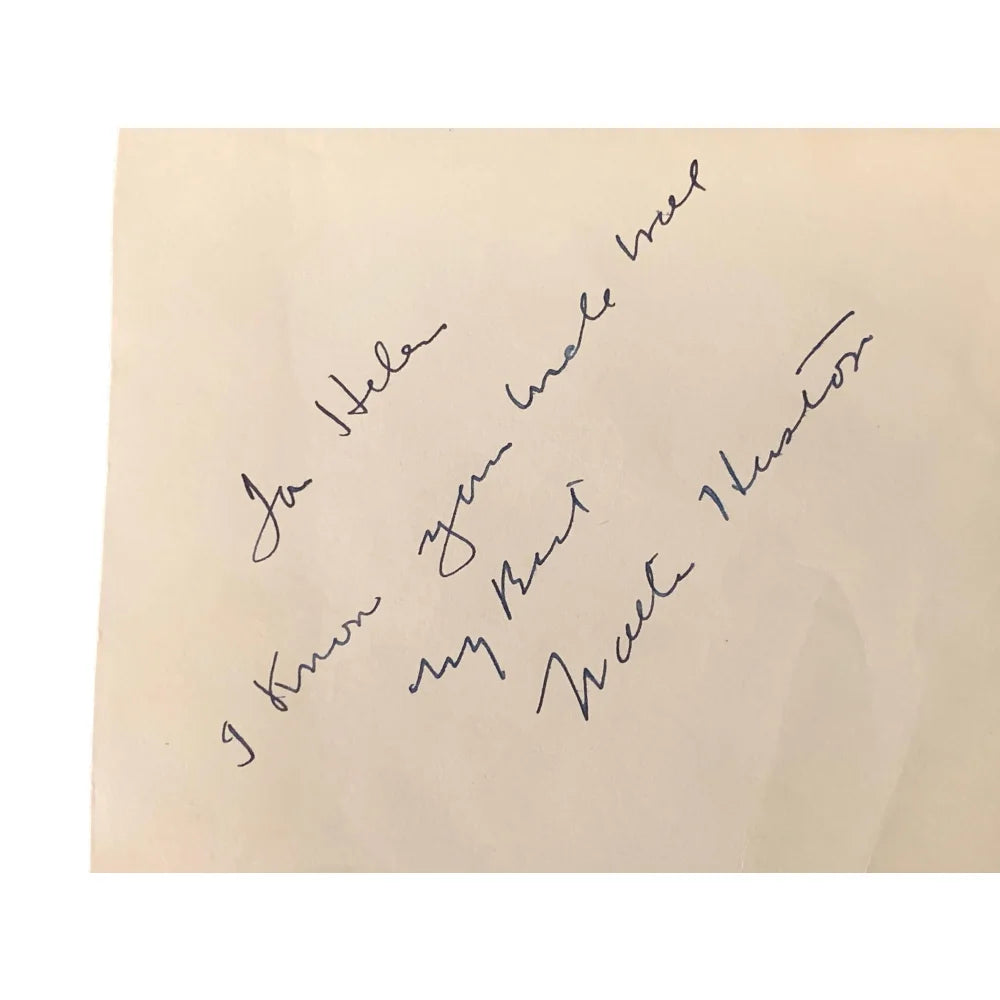 To Helen
I Know you will
my Best
Walter Huston